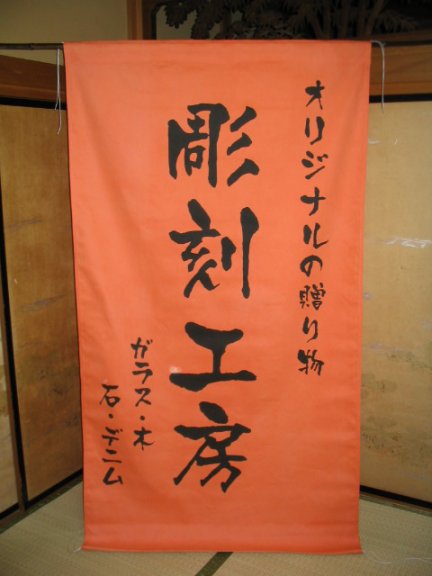 オリジナルの贈り物
彫刻工房
ガラス・木
石・デニム